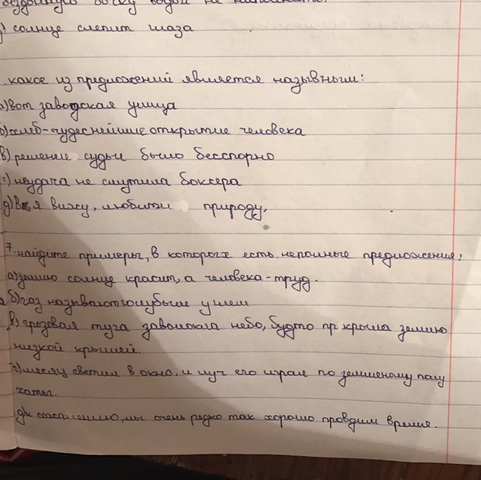 бездонную бочку водой не наполнить.
) солнце слепит глаза
какое из предложений является назывным:
а)вот заводская улица
б)хлеб-чудеснейшие открытие человека
в)решение судьи было бесспорно
г)неудача не смутила боксера
д)я вижу, любители природу.
7. найдите примеры, в которых есть неполные предложения:
а)землю солнце красит, а человека-труд.
б)газ называют голубым углем
в)грозовая туча заволокла небо, будто пр крыла землю
низкой крышей.
г)месяц светит в окно, и луч его играл по земляному полу
хаты.
д)к сожалению, мы очень редко так хорошо проводим время.